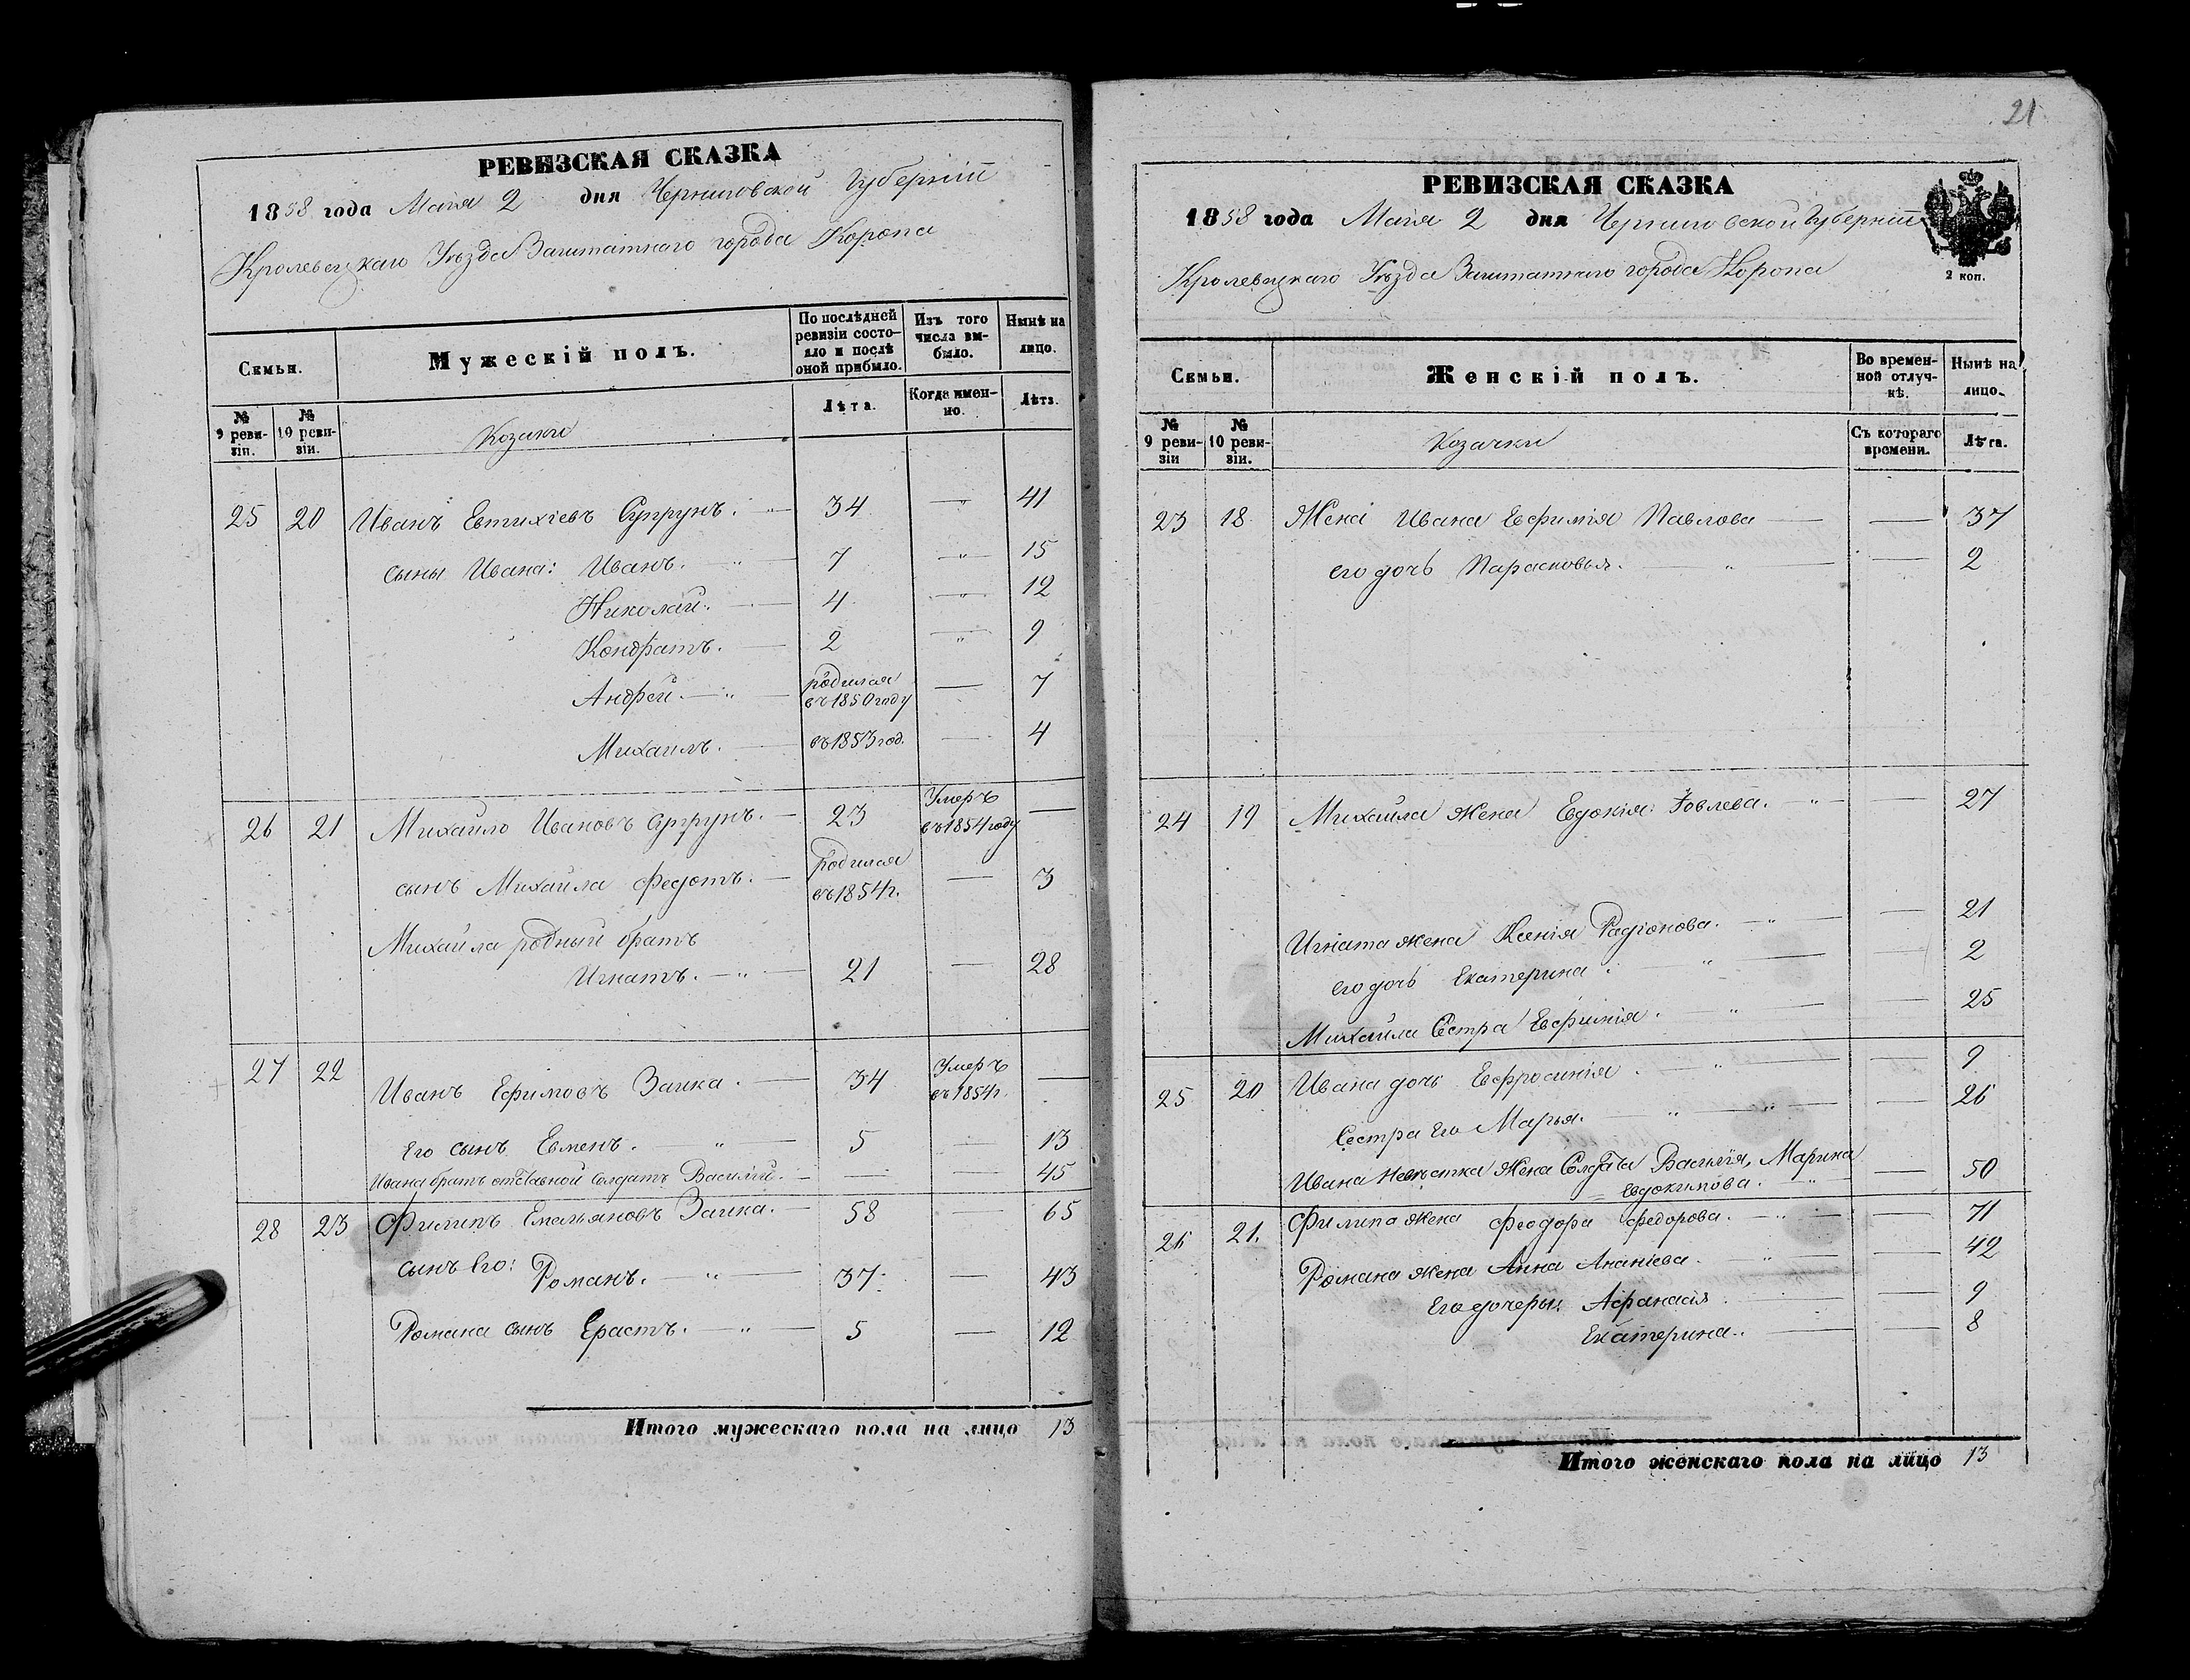 РЕВИЗСКАЯ СКАЗКА
1858 года Мая 2 дня Черниговской Губерніи
Кролевецкаго Уѣзда Заштатнаго города Коропа
Семьи.
Мужескій полъ.
По послѣдней ревизіи состояло и послѣ оной прибыло.
Изъ того числа выбыло.
Нынѣ на лицо.
№ 9 ревизіи.
№ 10 ревизіи.
Козаки
Лѣта.
Когда именно.
Лѣта.
25 20 Иванъ Евтихіевъ Супрунъ. 34 — 41
сыны Ивана: Иванъ. 7 — 15
Николай. 4 — 12
Кондратъ. 2 — 9
Андрей. родился въ 1850 году — 7
Михаилъ. въ 1853 год. — 4
26 21 Михайло Ивановъ Супрунъ. 23 Умеръ въ 1854 году —
сынъ Михайла Федотъ. родился въ 1854 г. — 3
Михайла родный братъ
Игнатъ. 21 — 28
27 22 Иванъ Ефимовъ Заика. 34 Умеръ въ 1854 г. —
Его сынъ Евменъ. 5 — 13
Ивана братъ отставной Солдатъ Василій. — — 45
28 23 Филипъ Емельяновъ Заика. 58 — 65
сынъ Его: Романъ. 37. — 43
Романа сынъ Ерастъ. 5 — 12
Итого мужескаго пола на лицо 13
21
РЕВИЗСКАЯ СКАЗКА
1858 года Мая 2 дня Черниговской Губерніи
2 коп.
Кролевецкаго Уѣзда Заштатнаго города Коропа
Семьи.
Женскій полъ.
Во временной отлучкѣ.
Нынѣ на лицо.
№ 9 ревизіи
№ 10 ревизіи.
Козачки
Съ котораго времени.
Лѣта.
23 18 Жена Ивана Евфимія Павлова — 37
его дочь Парасковья. — 2
24 19 Михайла жена Евдокія Іовлева. — 27
Игната жена Ксенія Радіонова. — 21
его дочь Екатерина. — 2
Михайла Сестра Евфимія. — 25
25 20 Ивана дочь Евфросинія. — 9
Сестра Его Марья. — 26
Ивана Невѣстка Жена Солдата Василія, Марина
Евдокимова. — 50
26 21. Филипа Жена Феодора Федорова. — 71
Романа жена Анна Ананіева. — 42
Его дочеры: Афанасія — 9
Екатерина. — 8
Итого женскаго пола на лицо 13